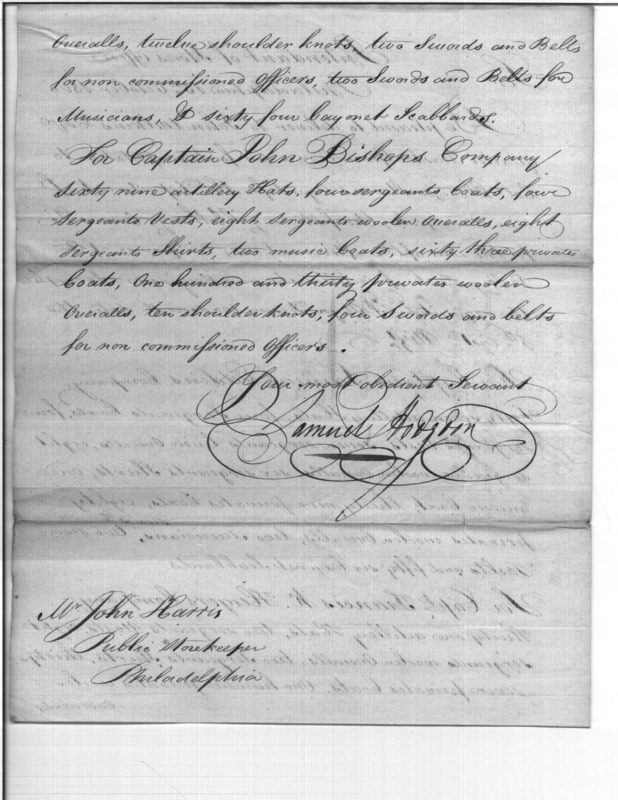 Overalls, twelve shoulder knots, two Swords and Belts
for non commissioned Officers, two Swords and Belts for
Musicians, & sixty four bayonet Scabbards.
For Captain John Bishops Company
Sixty nine artillery Hats, four sergeants Coats, four
Sergeants Vests, eight Sergeants woolen Overalls, eight
Sergeants Shirts, two music Coats, sixty three privates
Coats, One hundred and thirty privates woolen
Overalls, ten shoulder knots, four Swords and belts
for non commissioned Officers.
Your most obedient Servant
Samuel Hodgdon
Mr John Harris
Public Storekeeper
Philadelphia